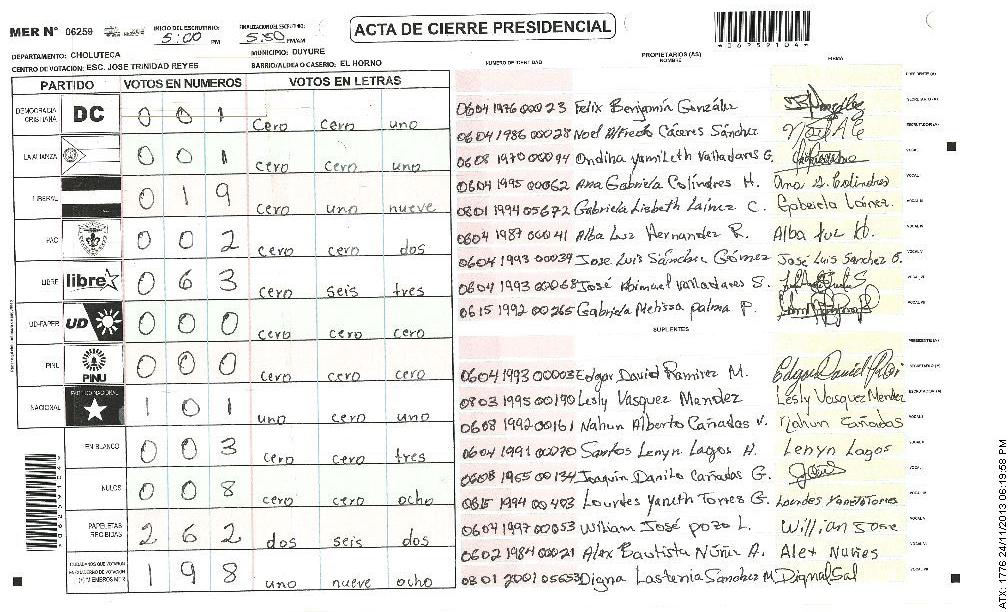 MER N° 06259 INICIO DEL ESCRUTINIO: 5:00 PM FINALIZACION DEL ESCRUTINIO: 5:50 PM/AM
ACTA DE CIERRE PRESIDENCIAL
DEPARTAMENTO: CHOLUTECA MUNICIPIO: DUYURE
CENTRO DE VOTACION: ESC. JOSE TRINIDAD REYES BARRIO/ALDEA O CASERIO: EL HORNO
PARTIDO VOTOS EN NUMEROS VOTOS EN LETRAS
DEMOCRACIA CRISTIANA DC 0 0 1 cero cero uno
LA ALIANZA 0 0 1 cero cero uno
LIBERAL 0 1 9 cero uno nueve
PAC 0 0 2 cero cero dos
LIBRE libre 0 6 3 cero seis tres
UD-FAPER UD 0 0 0 cero cero cero
PINU PINU 0 0 0 cero cero cero
NACIONAL PARTIDO NACIONAL 1 0 1 uno cero uno
EN BLANCO 0 0 3 cero cero tres
NULOS 0 0 8 cero cero ocho
PAPELETAS RECIBIDAS 2 6 2 dos seis dos
CIUDADANOS QUE VOTARON 1 9 8 uno nueve ocho
NUMERO DE IDENTIDAD PROPIETARIOS (AS) NOMBRE FIRMA
0604 1976 00023 Felix Benjamín González
0604 1986 00028 Noel Alfredo Cáceres Sánchez
0608 1970 00094 Ondina Yamileth Valladares G.
0604 1995 00062 Ana Gabriela Colindres H. Ana G. Colindres
0801 1994 05672 Gabriela Lisbeth Laínez C. Gabriela Laínez.
0604 1987 00041 Alba Luz Hernandez R. Alba Luz H.
0604 1993 00039 Jose Luis Sánchez Gómez José Luis Sanchez G.
0604 1993 00068 José Abimuel Valladares S.
0615 1992 00265 Gabriela Melissa palma P.
SUPLENTES
0604 1993 00003 Edgar David Ramirez M.
0803 1995 00190 Lesly Vasquez Mendez Lesly Vasquez Mendez
0608 1992 00161 Nahun Alberto Cañadas V. Nahun Cañadas
0604 1991 00070 Santos Lenyn Lagos H. Lenyn Lagos
0608 1965 00134 Joaquin Danilo Cañadas G.
0615 1994 00493 Lourdes Yaneth Torres G. Lourdes Yaneth Torres
0604 1997 00053 William José pozo L. Willian Jose
0602 1984 00021 Alex Bautista Núñez A. Alex Nuñes
0801 2001 05653 Digna Lastenia Sanchez M.
ATX: 1776 24/11/2013 06:19:58 PM